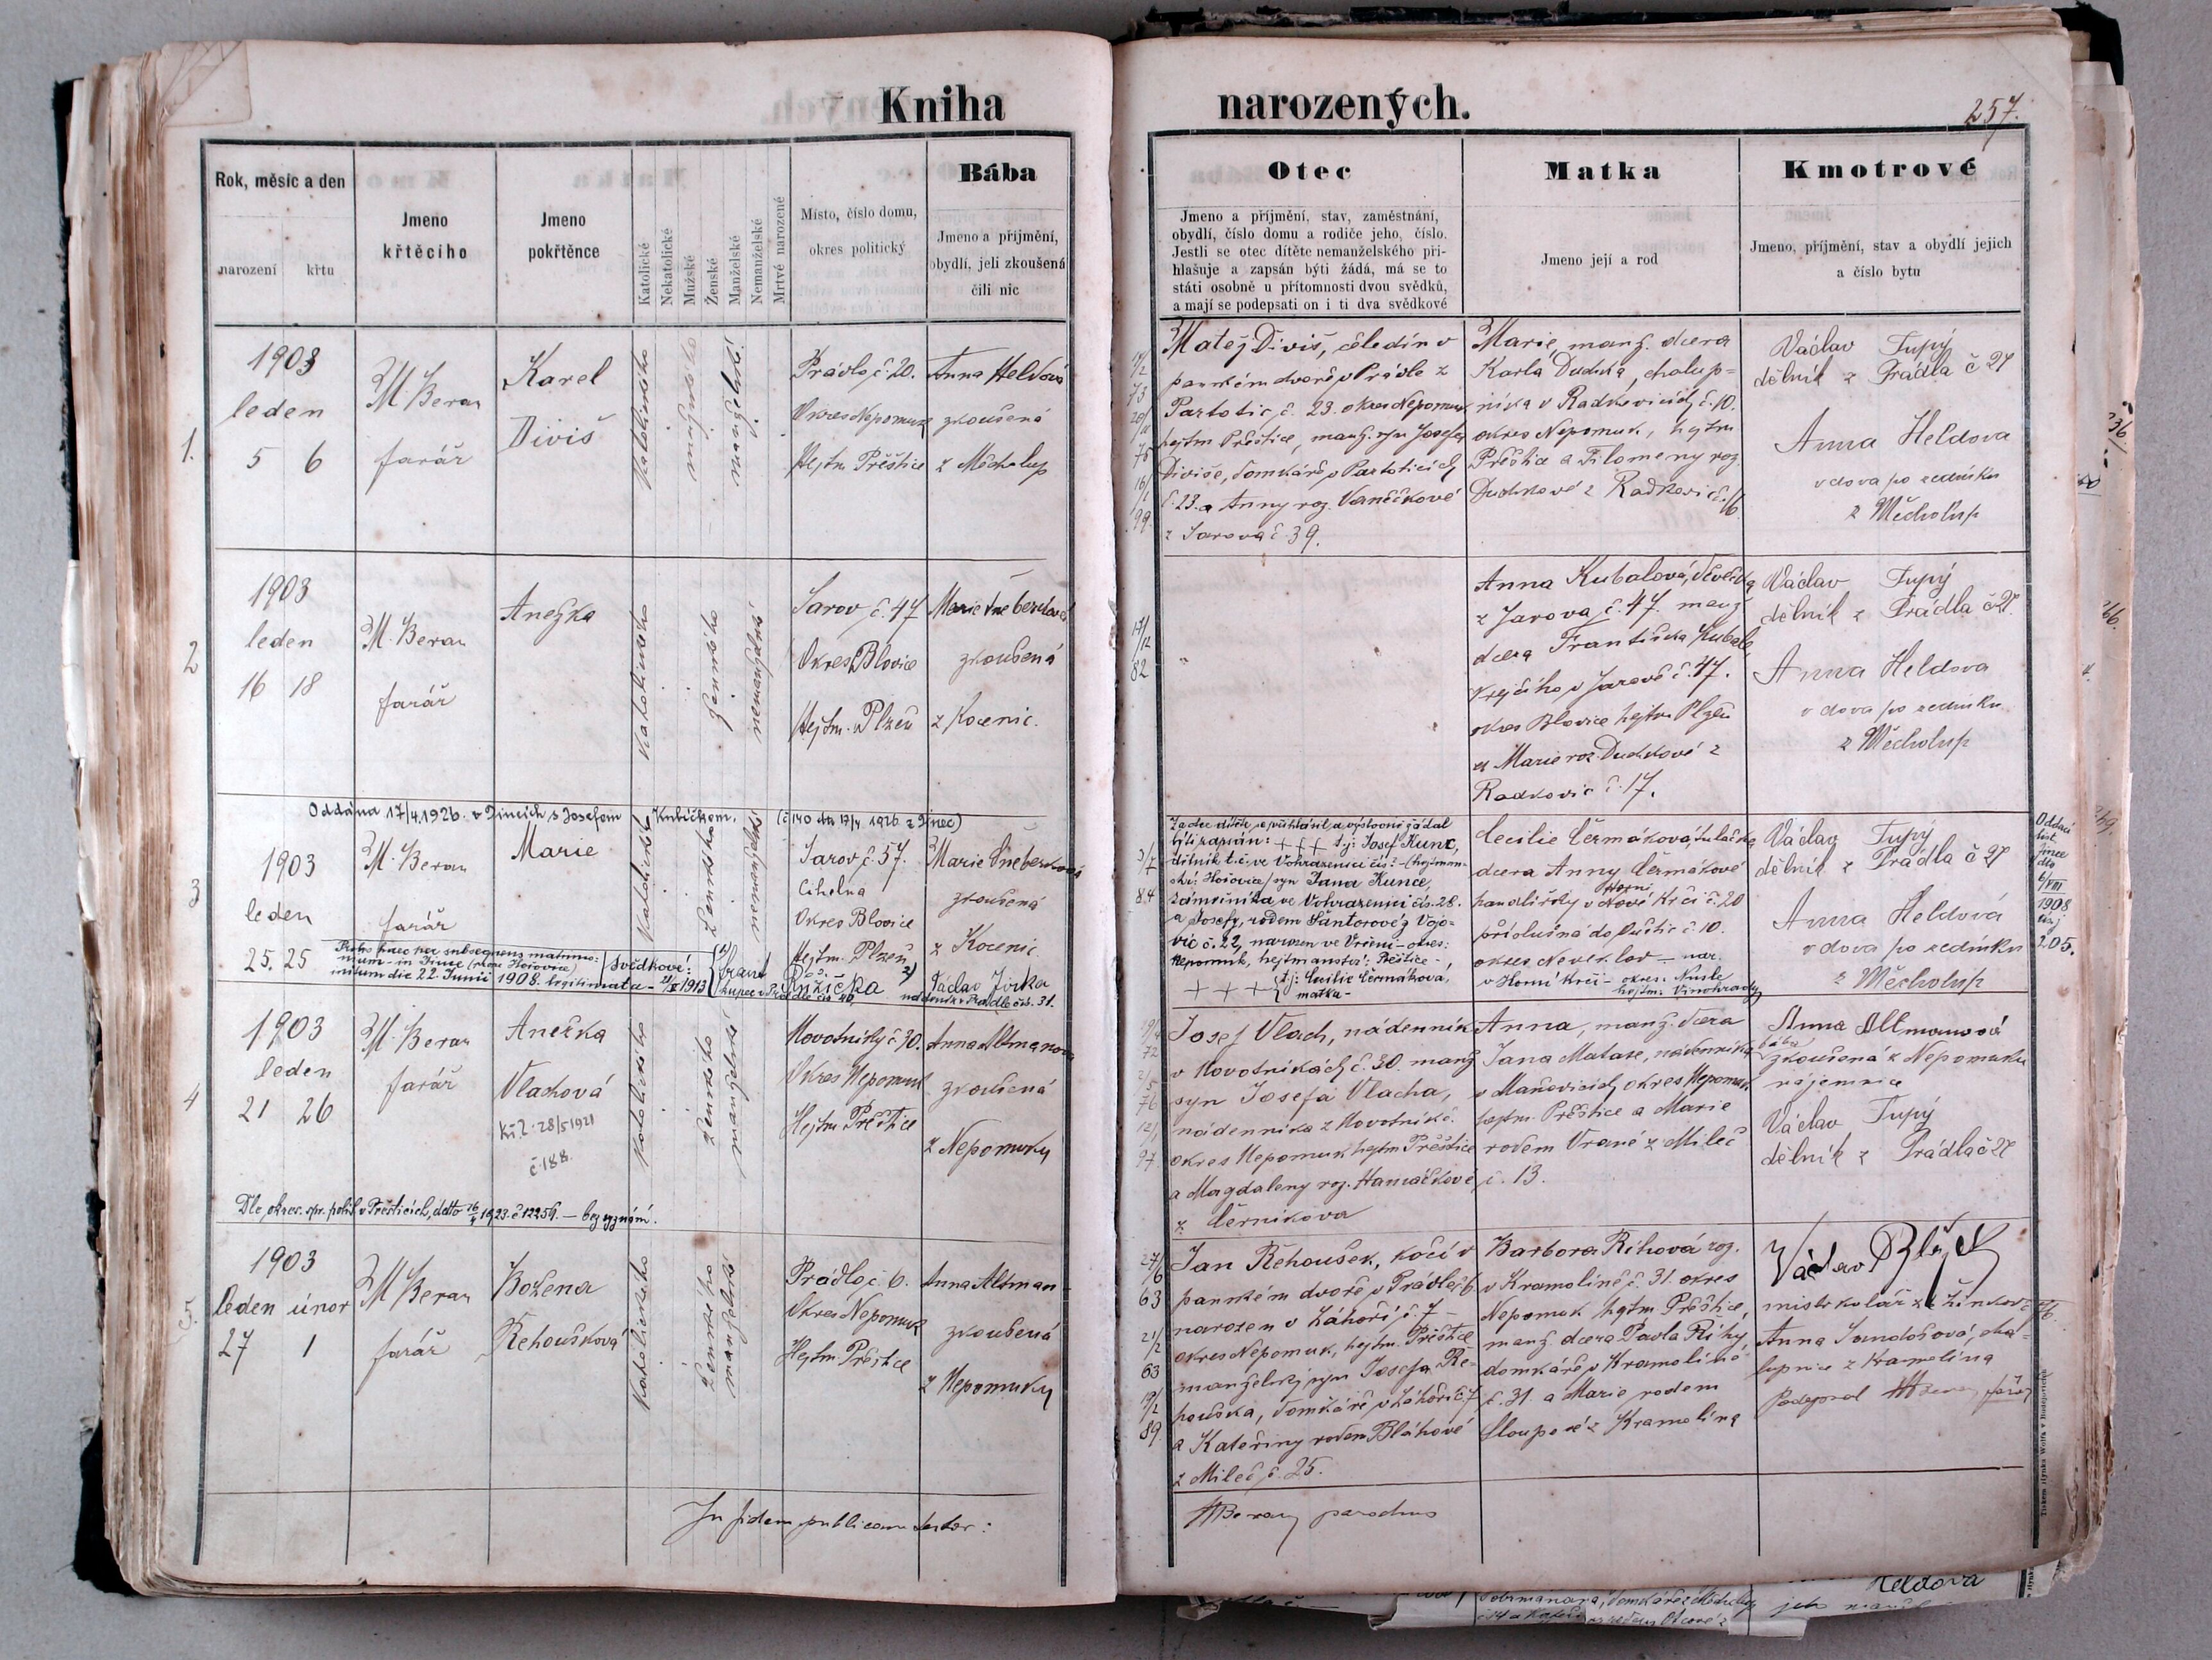 Kniha
narozených.
257.
Rok, měsíc a den
narození křtu
Jmeno
křtěcího
Jmeno
pokřtěnce
Katolické
Nekatolické
Mužské
Ženské
Manželské
Nemanželské
Mrtvě narozené
Místo, číslo domu,
okres politický
Bába
Jmeno a příjmění,
obydlí, jeli zkoušená
čili nic
Otec
Jmeno a příjmění, stav, zaměstnání,
obydlí, číslo domu a rodiče jeho, číslo.
Jestli se otec dítěte nemanželského při-
hlašuje a zapsán býti žádá, má se to
státi osobně u přítomnosti dvou svědků,
a mají se podepsati on i ti dva svědkové
Matka
Jmeno její a rod
Kmotrové
Jmeno, příjmění, stav a obydlí jejich
a číslo bytu
1.
1903
leden
5 6
M Beran
farář
Karel
Diviš
katolického
mužského
manželské
Prádlo č. 20.
Okres Nepomuk
Hejtm. Přeštice
Anna Heldová
zkoušená
z Měcholup
Matěj Diviš, čeledín v
panském dvoře v Prádle z
Partotic, č. 23. okres Nepomuk
hejtm Přeštice, manž. syn Josefa
Diviše, domkáře v Partoticích
č. 23. a Anny roz. Vaněčkové
z Jarova č. 39.
Marie, manž. dcera
Karla Dudka, chalup-
níka v Radkovicích č. 10.
okres Nepomuk, hejtm
Přeštice a Filomeny roz.
Dudkové z Radkovic č. 16
Václav Tupý
dělník z Prádla č 27
Anna Heldova
vdova po zedníku
z Měcholup
2
1903
leden
16 18
M. Beran
farář
Anežka
katolického
ženského
nemanželské
Jarov č. 47
Okres Blovice
Hejtm. Plzeň
Marie Šneberková
zkoušená
z Kocenic.
17/12
82
Anna Kubalová, děvečka
z Jarova č. 47. manž
dcera Františka Kubale,
krejčího v Jarově č. 47.
okres Blovice hejtm Plzeň
a Marie roz. Dudkové z
Radkovic č. 17.
Václav Tupý
dělník z Prádla č 27.
Anna Heldova
vdova po zedníku
z Měcholup
Oddána 17/4 1926. v Jincích s Josefem Kubíčkem. (č 140 dto 17/4 1926 z Jinec)
3
1903
leden
25. 25
M. Beran
farář
Marie
katolického
ženského
nemanželské
Jarov č. 57.
Cihelna
Okres Blovice
Hejtm. Plzeň
Marie Šneberková
zkoušená
z Kocenic
Proles haec per subsequens matrimo-
nium - in Jince (prope Hořovice)
initum die 22. Junii 1908. legitimata -
Svědkové:
Růžička
kupec v Prádle čís 40.
Václav Jirka
nádeník v Prádle čís. 31.
3/7
84
Za otce dítěte se přihlásil a výslovně žádal
býti zapsán: +++ t.j: Josef Kunc,
dělník t.č. ve Vohrazenici čís:
Hořovice/ syn Jana Kunce,
zámečníka, ve Vohrazenici čís. 28.
a Josefy, rodem Šantorové z Vojo-
vic č. 22, narozen ve Vrčeni - okres:
Nepomuk, hejtmanství: Přeštice -,
+++ t.j: Cecilie Čermáková,
matka -
Cecilie Čermáková, tulačka
dcera Anny Čermákové
v Nové Krči č. 20
Horní
příslušná do Puštic č. 10.
okres Neveklov - nar.
v Horní Krči - okres: Nusle
hejtm: Vinohrady
Václav Tupý
dělník z Prádla č 27
Anna Heldová
vdova po zedníku
z Měcholup
Oddací
list
Jince
dto
6/VIII
1908
čísj
205.
4
1903
leden
21 26
M. Beran
farář
Anežka
Vlachová
Kř. l. 28/5 1921
č 188.
katolického
ženského
manželské
Novotníky č 30.
Okres Nepomuk
Hejtm Přeštice
Anna Altmanova
zkoušená
z Nepomuku
Josef Vlach, nádenník
v Novotníkách č. 30 manž
syn Josefa Vlacha,
nádenníka z Novotník č.
okres Nepomuk hejtm Přeštice
a Magdaleny roz. Hamáčkové
z Černíkova
Anna, manž. dcera
Jana Matase, nádenníka
v Maňovicích okres Nepomuk
hejtm. Přeštice a Marie
rodem Vrané z Mileč
č. 13.
Anna Altmanová
bába
zkoušená z Nepomuku
nájemnice
Václav Tupý
dělník z Prádla č 27
Dle okres. spr. polit. v Přešticích, ddto 16/4 1923. č 12259. - bez vyznání.
5.
1903
leden únor
27 1
M Beran
farář
Božena
Řehoušková
katolického
ženského
manželské
Prádlo č. 6.
Okres Nepomuk
Hejtm. Přeštice
Anna Altman
zkoušená
z Nepomuku
27/6
63
21/2
63
89.
Jan Řehoušek, kočí v
panském dvoře v Prádle č 6
narozen v Záhoří č. 7 -
okres Nepomuk, hejtm. Přeštice
manželský syn Josefa Ře-
houška, domkáře v Záhoří č 7
a Kateřiny rodem Bláhové
z Mileč č. 25.
Barbora Říhová roz.
v Kramolíně č. 31. okres
Nepomuk hejtm Přeštice,
manž. dcera Pavla Říhy
domkáře v Kramolíně
č. 31. a Marie rodem
Sloupové z Kramolína
Václav
mistr kolář z Žinkov
Anna Jandošová, cha-
lupnice z Kramolína
Podepsal M Beran, farář
In fidem publicam testor:
M Beran parochus
Heldova